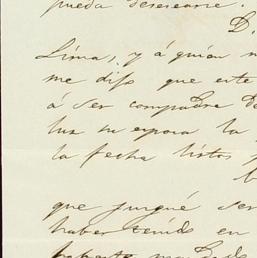 pueda desearse.
D.
Lima, y á quien
me dijo que este
á ser compadre de
luz su esposa la
la fecha listos
que juzgué ser
haber tenido en